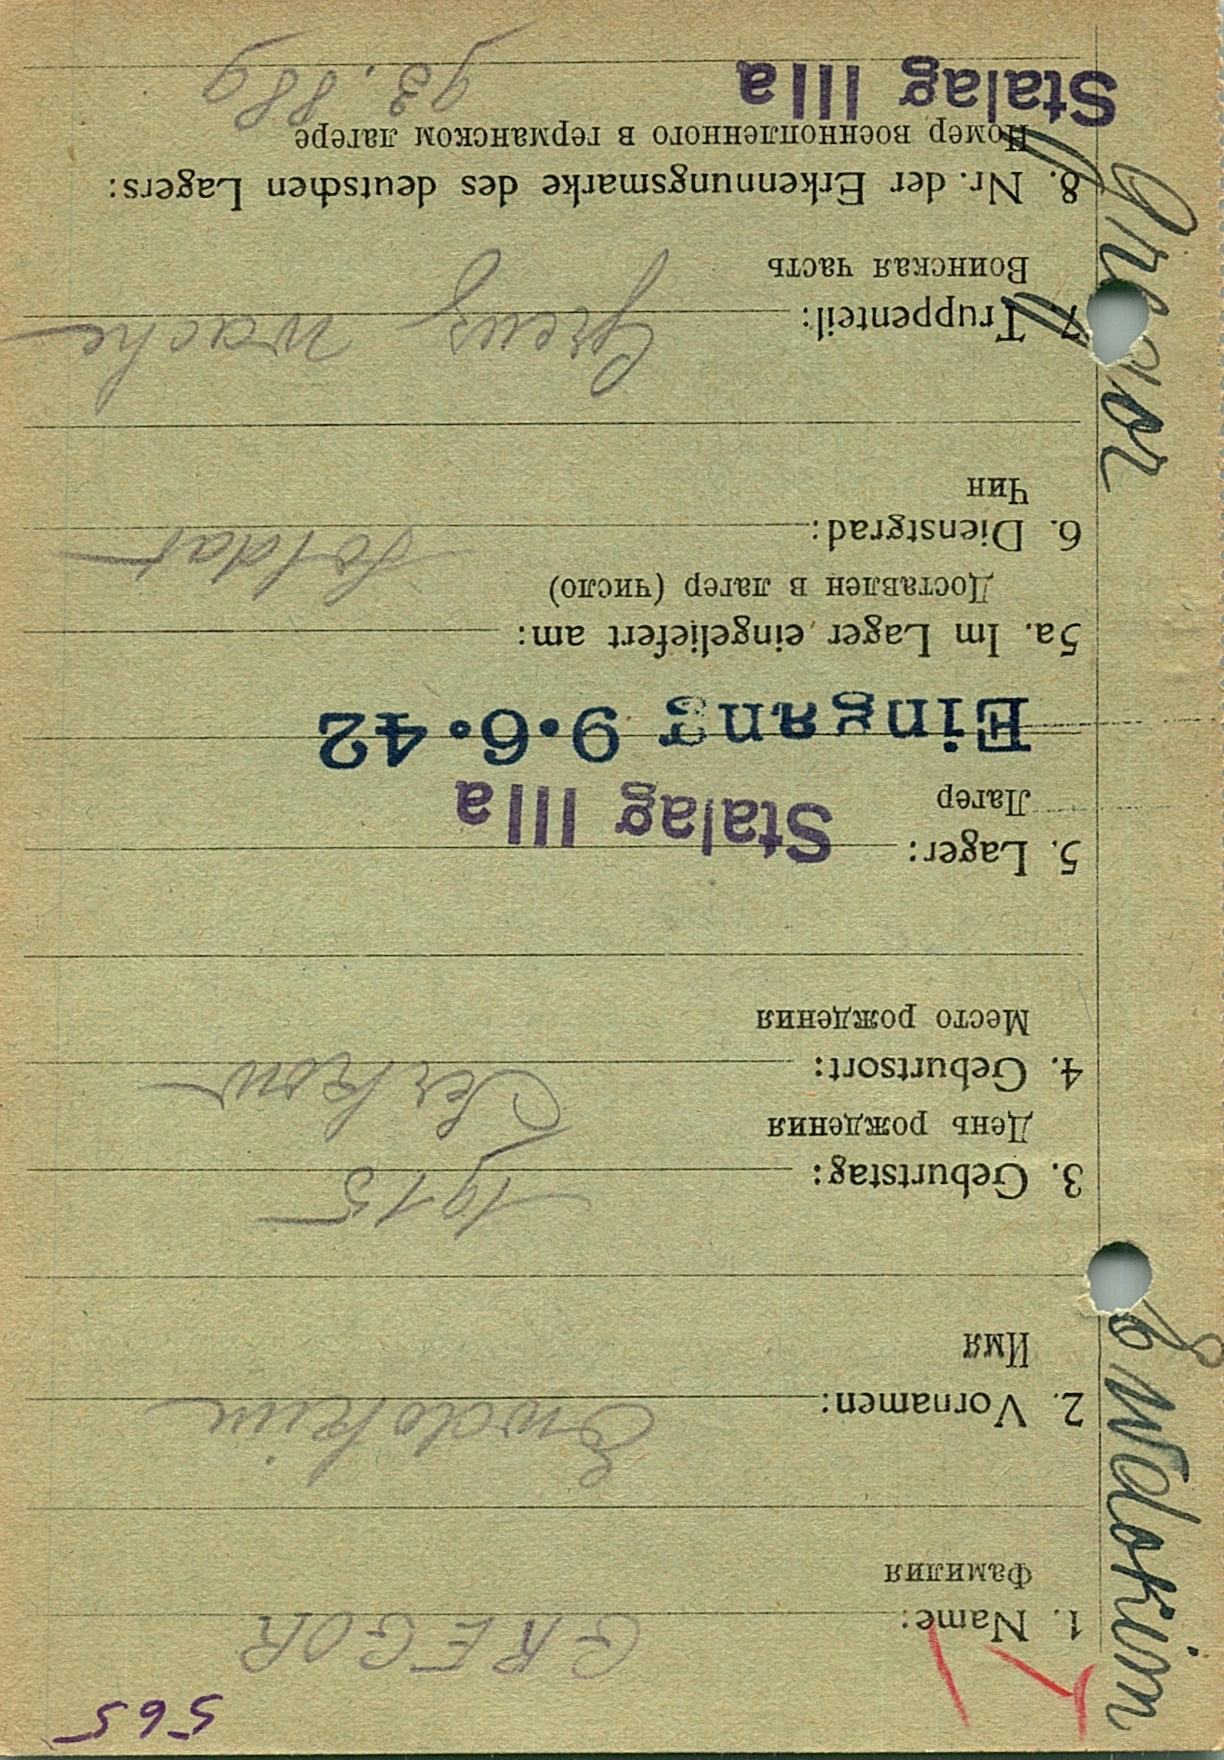 565
1. Name: GREGOR
Фамилия
2. Vornamen: Ewdokim
Имя
3. Geburtstag: 1915
День рождения
4. Geburtsort:
Место рождения
5. Lager: Stalag IIIa
Лагер
Eingang 9.6.42
5a. Im Lager eingeliefert am:
Доставлен в лагер (число)
6. Dienstgrad: Soldat
Чин
7. Truppenteil: Grenz wache
Воинская часть
8. Nr. der Erkennungsmarke des deutschen Lagers:
Номер военнопленного в германском лагере
Stalag IIIa
Ewdokim